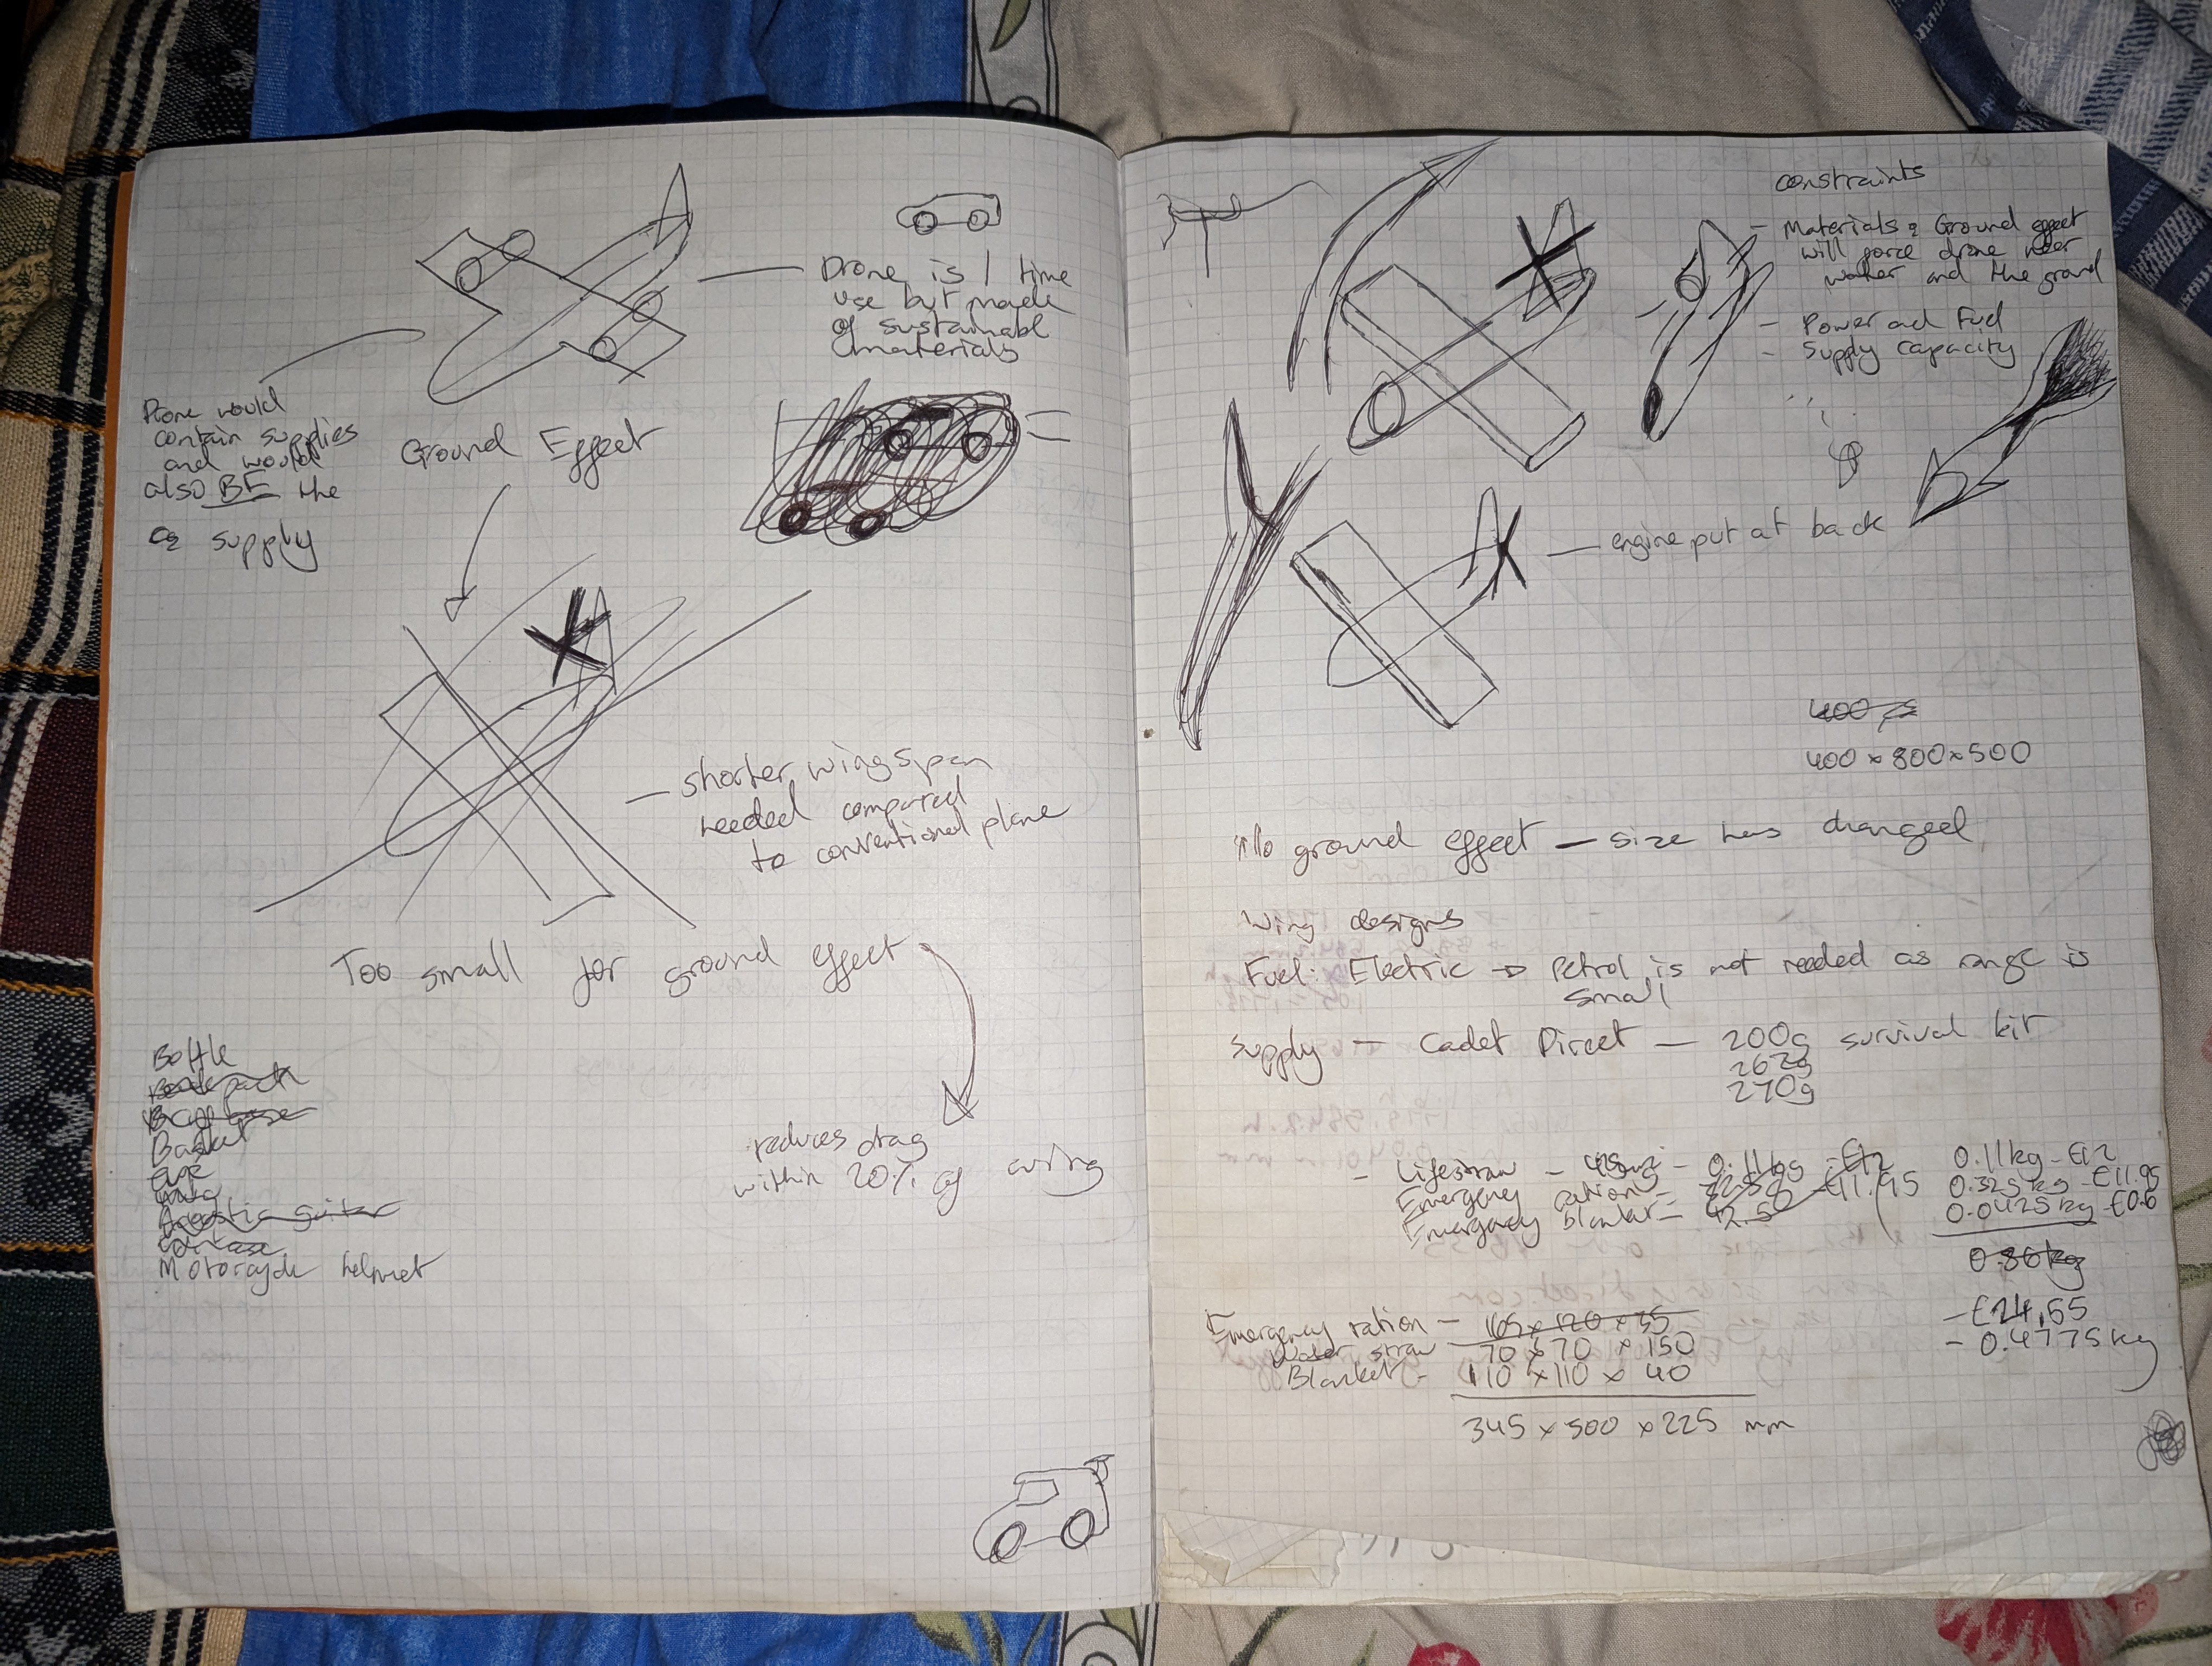 Drone is 1 time
use but made
of sustainabl
materials
Drone would
contain supplies
and would
also BE the
supply
Ground Effect
shorter wingspan
needed compared
to conventional plane
Too small for ground effect
reduces drag
within 20% of wing
Bottle
Basket
Mug
Acoustic guitar
Motorcycle helmet
constraints
- Materials & Ground effect
will force drone near
water and the ground
- Power and Fuel
- Supply capacity
engine put at back
400 x
400 x 800 x 500
No ground effect - size has changed
Wing designs
Fuel: Electric → Petrol is not needed as range is
small
Supply - Cadet Direct - 200g survival kit
262g
270g
- Lifestraw - 0.11kg - £12 0.11kg - £12
Emergency ration - £11.95 0.325kg - £11.95
Emergency blanket - 42.5 0.0425kg - £0.6
0.86kg
- £24,55
- 0.4775kg
Emergency ration - 165 x 120 x 35
Water straw 70 x 70 x 150
Blanket - 110 x 110 x 40
345 x 500 x 225 mm